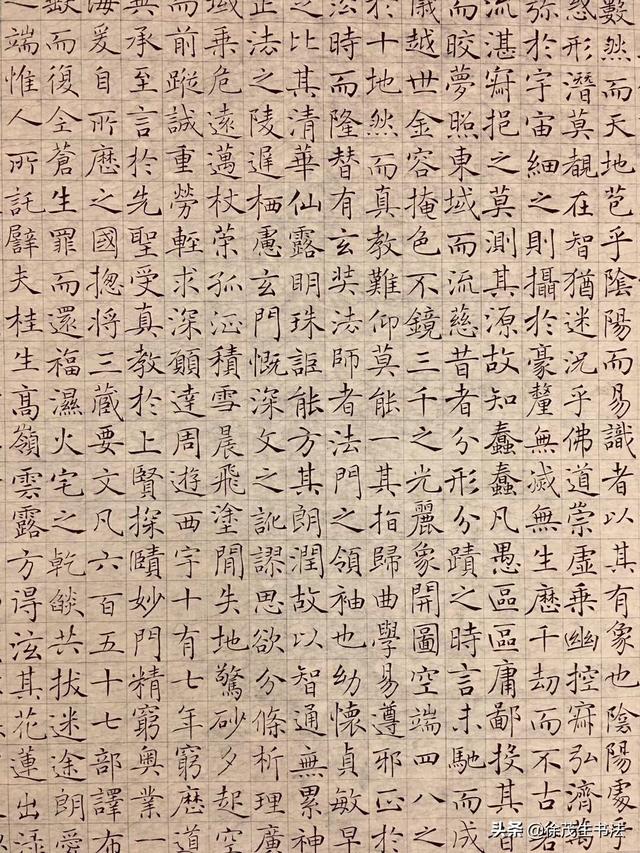 數然而天地苞乎陰陽而易識者以其有象也陰陽處乎
惑形潛莫覩在智猶迷況乎佛道崇虛乘幽控寂弘濟萬
彌於宇宙細之則攝於豪釐無滅無生歷千劫而不古若
流湛寂挹之莫測其源故知蠢蠢凡愚區區庸鄙投其旨
而皎夢照東域而流慈昔者分形分蹟之時言未馳而成
越世金容掩色不鏡三千之光麗象開圖空端四八之
於十地然而真教難仰莫能一其指歸曲學易遵邪正於
時而隆替有玄奘法師者法門之領袖也幼懷貞敏早
之比其清華仙露明珠詎能方其朗潤故以智通無累神
正法之陵遲栖慮玄門慨深文之訛謬思欲分條析理廣
域乘危遠邁杖策孤征積雪晨飛塗閒失地驚砂夕起空
而前蹤誠重勞輕求深願達周遊西宇十有七年窮歷道
承至言於先聖受真教於上賢探賾妙門精窮奧業
海爰自所歷之國揔將三藏要文凡六百五十七部譯布
缺而復全蒼生罪而還福濕火宅之乾燄共拔迷途朗愛
之端惟人所託譬夫桂生高嶺雲露方得泫其花蓮出淥
头条 @徐茂生书法